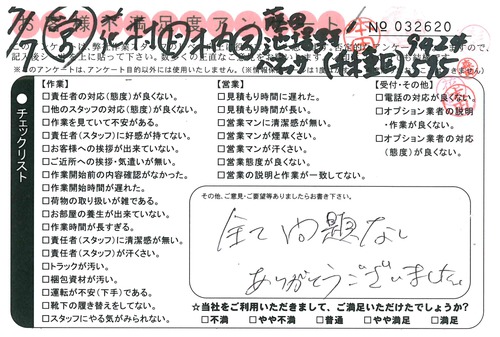 お客様不満足度アンケート
No 032620
チェックリスト
【作業】
□責任者の対応(態度)が良くない。
□他のスタッフの対応(態度)が良くない。
□作業を見ていて不安がある。
□責任者(スタッフ)に好感が持てない。
□お客様への挨拶が出来ていない。
□ご近所への挨拶・気遣いが無い。
□作業開始前の内容確認がなかった。
□作業開始時間が遅れた。
□荷物の取り扱いが雑である。
□お部屋の養生が出来ていない。
□作業時間が長すぎる。
□責任者(スタッフ)に清潔感が無い。
□責任者(スタッフ)が汗くさい。
□トラックが汚い。
□梱包資材が汚い。
□運転が不安(下手)である。
□靴下の履き替えをしてない。
□スタッフにやる気がみられない。
【営業】
□見積もり時間に遅れた。
□見積もり時間が長い。
□営業マンに清潔感が無い。
□営業マンが煙草くさい。
□営業マンが汗くさい。
□営業態度が良くない。
□営業の説明と作業が一致してない。
【受付・その他】
□電話の対応が良くない。
□オプション業者の説明
・作業が良くない。
□オプション業者の対応
(態度)が良くない。
その他、ご意見・ご要望等ありましたらお書き下さい。
全て問題なし
ありがとうございました。
☆当社をご利用いただきまして、ご満足いただけたでしょうか?
□不満 □やや不満 □普通 □やや満足 □満足